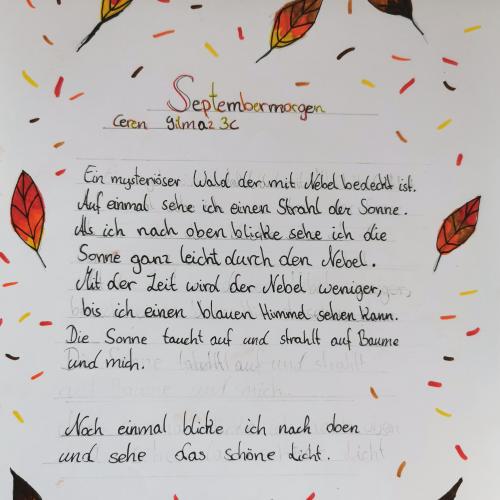 Septembermorgen
Ceren Yilmaz 3c
Ein mysteriöser Wald der mit Nebel bedeckt ist.
Auf einmal sehe ich einen Strahl der Sonne.
Als ich nach oben blicke sehe ich die
Sonne ganz leicht durch den Nebel.
Mit der Zeit wird der Nebel weniger,
bis ich einen blauen Himmel sehen kann.
Die Sonne taucht auf und strahlt auf Bäume
und mich.
Noch einmal blicke ich nach oben
und sehe das schöne Licht.